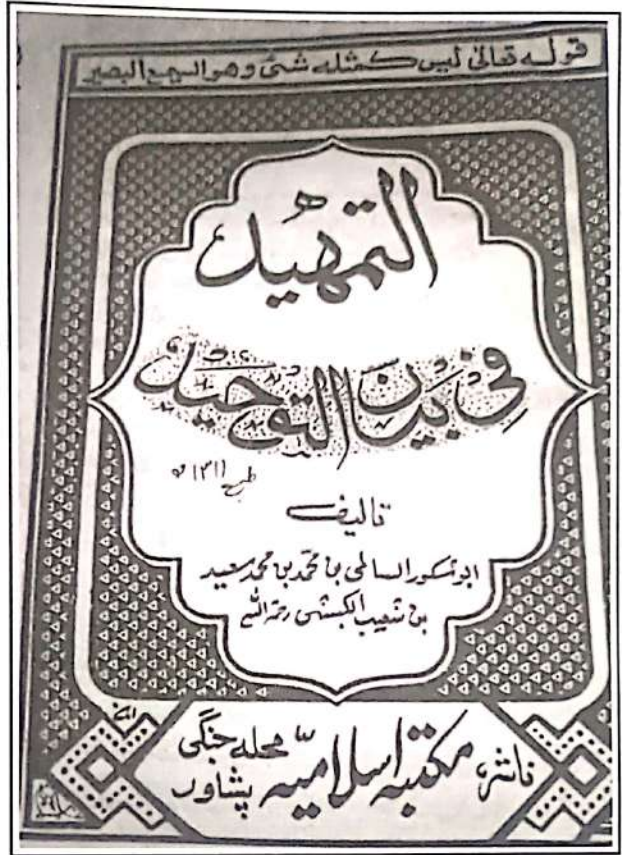 قوله تعالیٰ لیس کمثله شیٔ وهو السمیع البصیر
التمهید
فِی بَیَانِ التَّوحِید
طبع ١٣١١ ه
تالیف
ابو شکور السالمی بن محمد بن محمد سعید
بن شعیب الکبشی رحمہ اللہ
ناشر، مکتبہ اسلامیہ محلہ جنگی پشاور